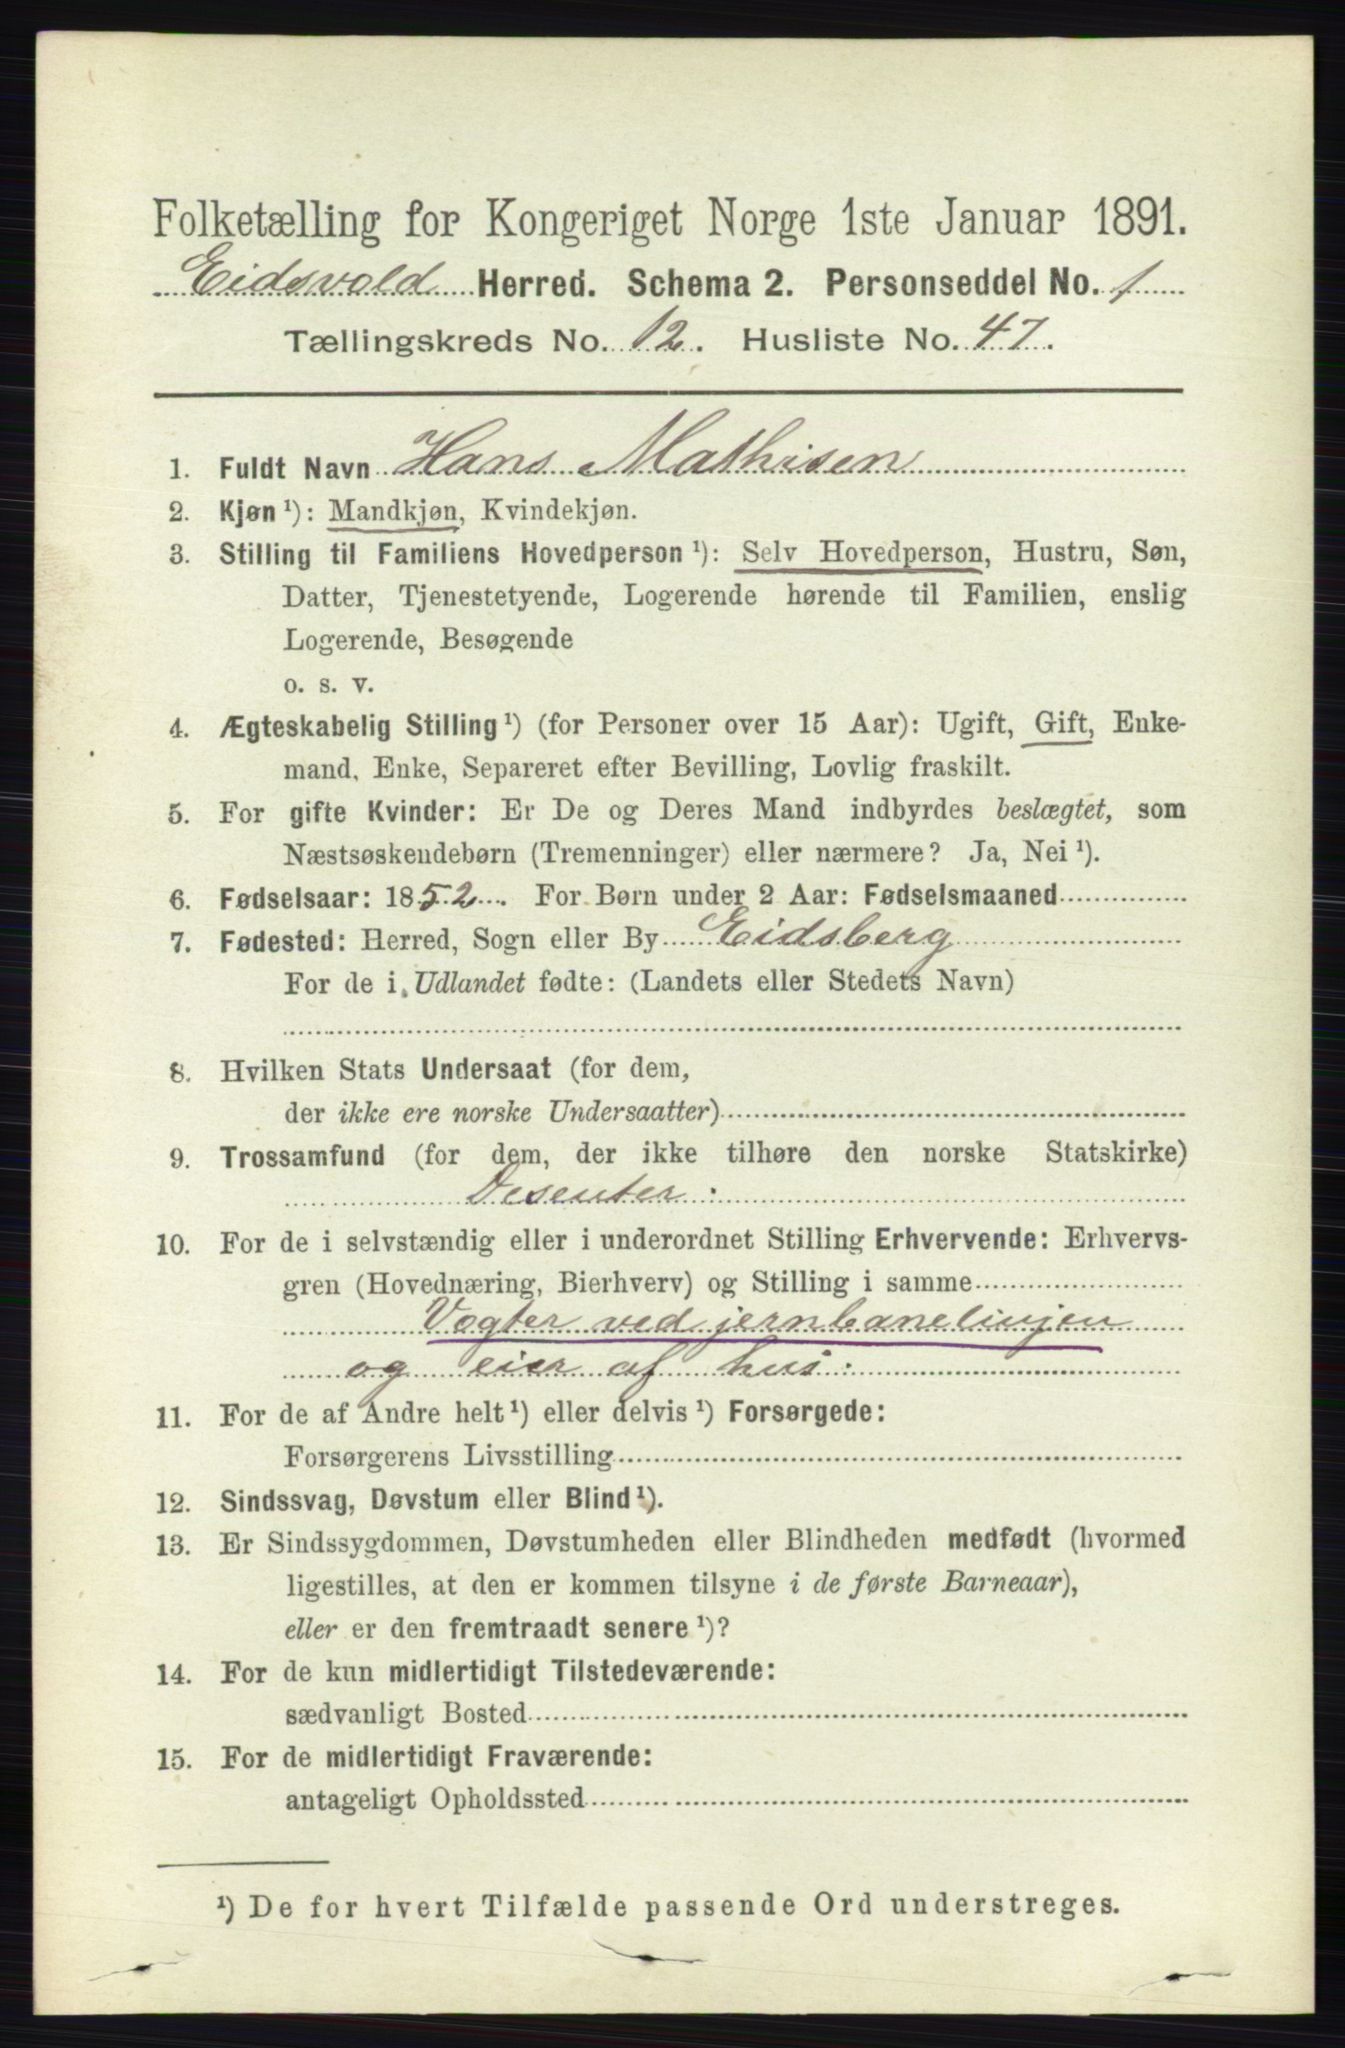 Folketælling for Kongeriget Norge 1ste Januar 1891.
Eidsvold Herred. Schema 2. Personseddel No. 1
Tællingskreds No. 12. Husliste No. 47.
1. Fuldt Navn Hans Mathisen
2. Kjøn¹): Mandkjøn, Kvindekjøn.
3. Stilling til Familiens Hovedperson¹): Selv Hovedperson, Hustru, Søn,
Datter, Tjenestetyende, Logerende hørende til Familien, enslig
Logerende, Besøgende
o. s. v.
4. Ægteskabelig Stilling¹) (for Personer over 15 Aar): Ugift, Gift, Enke-
mand, Enke, Separeret efter Bevilling, Lovlig fraskilt.
5. For gifte Kvinder: Er De og Deres Mand indbyrdes beslægtet, som
Næstsøskendebørn (Tremenninger) eller nærmere? Ja, Nei¹).
6. Fødselsaar: 1852. For Børn under 2 Aar: Fødselsmaaned
7. Fødested: Herred, Sogn eller By Eidsberg
For de i Udlandet fødte: (Landets eller Stedets Navn)
8. Hvilken Stats Undersaat (for dem,
der ikke ere norske Undersaatter)
9. Trossamfund (for dem, der ikke tilhøre den norske Statskirke)
Desenter:
10. For de i selvstændig eller i underordnet Stilling Erhvervende: Erhvervs-
gren (Hovednæring, Bierhverv) og Stilling i samme
Vogter ved jernbanelinjen
og eier af hus:
11. For de af Andre helt¹) eller delvis¹) Forsørgede:
Forsørgerens Livsstilling
12. Sindssvag, Døvstum eller Blind¹).
13. Er Sindssygdommen, Døvstumheden eller Blindheden medfødt (hvormed
ligestilles, at den er kommen tilsyne i de første Barneaar),
eller er den fremtraadt senere¹)?
14. For de kun midlertidigt Tilstedeværende:
sædvanligt Bosted
15. For de midlertidigt Fraværende:
antageligt Opholdssted
¹) De for hvert Tilfælde passende Ord understreges.